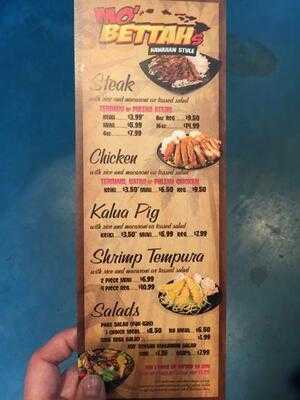 MO'
BETTAHs
HAWAIIAN STYLE
Steak
with rice and macaroni or tossed salad
TERIYAKI or PULEHU STEAK
KEIKI $3.99* 8oz REG $9.50
MINI $6.99 16oz $14.99
6oz $7.99
Chicken
with rice and macaroni or tossed salad
TERIYAKI, KATSU or PULEHU CHICKEN
KEIKI $3.50* MINI $6.50 REG $9.50
Kalua Pig
with rice and macaroni or tossed salad
KEIKI $3.50* MINI $5.99 REG $7.99
Shrimp Tempura
with rice and macaroni or tossed salad
2 PIECE MINI $6.99
4 PIECE REG $10.99
Salads
$8.50 NO MEAT $6.50
$7.99